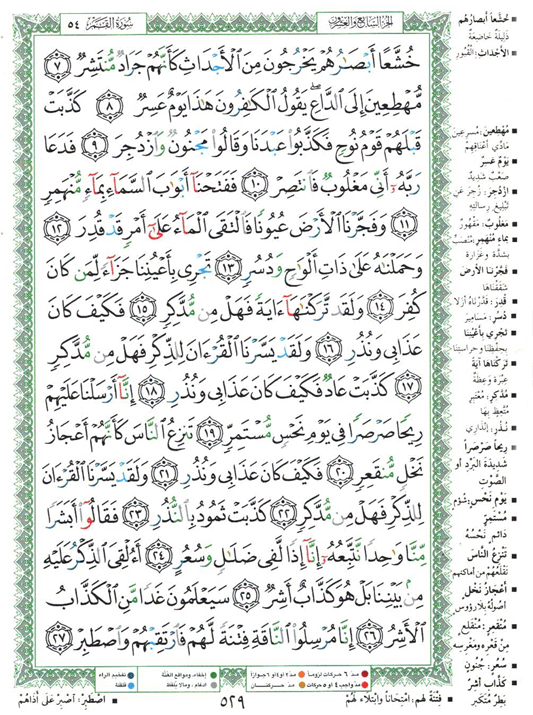 الجزء السابع والعشرون
سورة القمر
٥٤
خُشَّعًا أَبْصَٰرُهُمْ يَخْرُجُونَ مِنَ ٱلْأَجْدَاثِ كَأَنَّهُمْ جَرَادٌ مُّنتَشِرٌ ٧
مُّهْطِعِينَ إِلَى ٱلدَّاعِ ۖ يَقُولُ ٱلْكَٰفِرُونَ هَٰذَا يَوْمٌ عَسِرٌ ٨ كَذَّبَتْ
قَبْلَهُمْ قَوْمُ نُوحٍ فَكَذَّبُوا۟ عَبْدَنَا وَقَالُوا۟ مَجْنُونٌ وَٱزْدُجِرَ ٩ فَدَعَا
رَبَّهُۥٓ أَنِّى مَغْلُوبٌ فَٱنتَصِرْ ١٠ فَفَتَحْنَآ أَبْوَٰبَ ٱلسَّمَآءِ بِمَآءٍ مُّنْهَمِرٍ
١١ وَفَجَّرْنَا ٱلْأَرْضَ عُيُونًا فَٱلْتَقَى ٱلْمَآءُ عَلَىٰٓ أَمْرٍ قَدْ قُدِرَ ١٢
وَحَمَلْنَٰهُ عَلَىٰ ذَاتِ أَلْوَٰحٍ وَدُسُرٍ ١٣ تَجْرِى بِأَعْيُنِنَا جَزَآءً لِّمَن كَانَ
كُفِرَ ١٤ وَلَقَد تَّرَكْنَٰهَآ ءَايَةً فَهَلْ مِن مُّدَّكِرٍ ١٥ فَكَيْفَ كَانَ
عَذَابِى وَنُذُرِ ١٦ وَلَقَدْ يَسَّرْنَا ٱلْقُرْءَانَ لِلذِّكْرِ فَهَلْ مِن مُّدَّكِرٍ
١٧ كَذَّبَتْ عَادٌ فَكَيْفَ كَانَ عَذَابِى وَنُذُرِ ١٨ إِنَّآ أَرْسَلْنَا عَلَيْهِمْ
رِيحًا صَرْصَرًا فِى يَوْمِ نَحْسٍ مُّسْتَمِرٍّ ١٩ تَنزِعُ ٱلنَّاسَ كَأَنَّهُمْ أَعْجَازُ
نَخْلٍ مُّنقَعِرٍ ٢٠ فَكَيْفَ كَانَ عَذَابِى وَنُذُرِ ٢١ وَلَقَدْ يَسَّرْنَا ٱلْقُرْءَانَ
لِلذِّكْرِ فَهَلْ مِن مُّدَّكِرٍ ٢٢ كَذَّبَتْ ثَمُودُ بِٱلنُّذُرِ ٢٣ فَقَالُوٓا۟ أَبَشَرًا
مِّنَّا وَٰحِدًا نَّتَّبِعُهُۥٓ إِنَّآ إِذًا لَّفِى ضَلَٰلٍ وَسُعُرٍ ٢٤ أَءُلْقِىَ ٱلذِّكْرُ عَلَيْهِ
مِنۢ بَيْنِنَا بَلْ هُوَ كَذَّابٌ أَشِرٌ ٢٥ سَيَعْلَمُونَ غَدًا مَّنِ ٱلْكَذَّابُ
ٱلْأَشِرُ ٢٦ إِنَّا مُرْسِلُوا۟ ٱلنَّاقَةِ فِتْنَةً لَّهُمْ فَٱرْتَقِبْهُمْ وَٱصْطَبِرْ ٢٧
خُشَّعاً أبصارُهُم
ذليلةً خاضعةً
الأجداث: القُبُور
مُهْطِعين: مُسرعين
مادّي أعناقهم
يَوْمٌ عَسِرٌ
صَعْبٌ شديد
ازْدُجِرَ: زُجِرَ عن
تبليغ رسالته
مَغْلُوبٌ: مَقْهُورٌ
بماءٍ مُنْهَمِر: مُنْصَبّ
بشدّة وغزارة
فَجَّرْنا الأرضَ
شَقَقْناها
قُدِرَ: قَدَّرناهُ أزلا
دُسُرٍ: مَسامير
تَجْري بأعْيُنِنا
بحفظنا وحراستنا
تَرَكْناها آيَةً
عِبْرَةً وعِظَةً
مُدَّكِرٍ: مُعْتَبِر
مُتَّعِظٍ بها
نُذُرِ: إنذاري
ريحاً صَرْصَراً
شديدة البَرْد أو
الصَّوْت
يَوْم نَحْسٍ: شُؤم
مُسْتَمِرّ
دائم نَحْسُهُ
تَنْزِعُ النّاسَ
تَقْلَعُهُمْ من أماكنهم
أعجازُ نَخْلٍ
أصولُه بلا رؤوس
مُنْقَعِر: مُنْقَلِع
من قَعْرِه ومَغْرسه
سُعُرٍ: جُنُون
كَذَّابٌ أشِرٌ
بَطِرٌ مُتَكبر
مدّ ٦ حركات لزوماً
مدّ ٢ أو ٤ أو ٦ جوازاً
إخفاء، ومواقع الغُنّة
تفخيم الراء
مدّ واجب ٤ أو ٥ حركات
مدّ حركتان
ادغام، ومالا يُلفظ
قلقلة
فِتْنَةً لهم: امتحاناً وابتلاءً لَهُمْ
اصْطَبِرْ: اصبِرْ على أذاهُمْ
٥٢٩